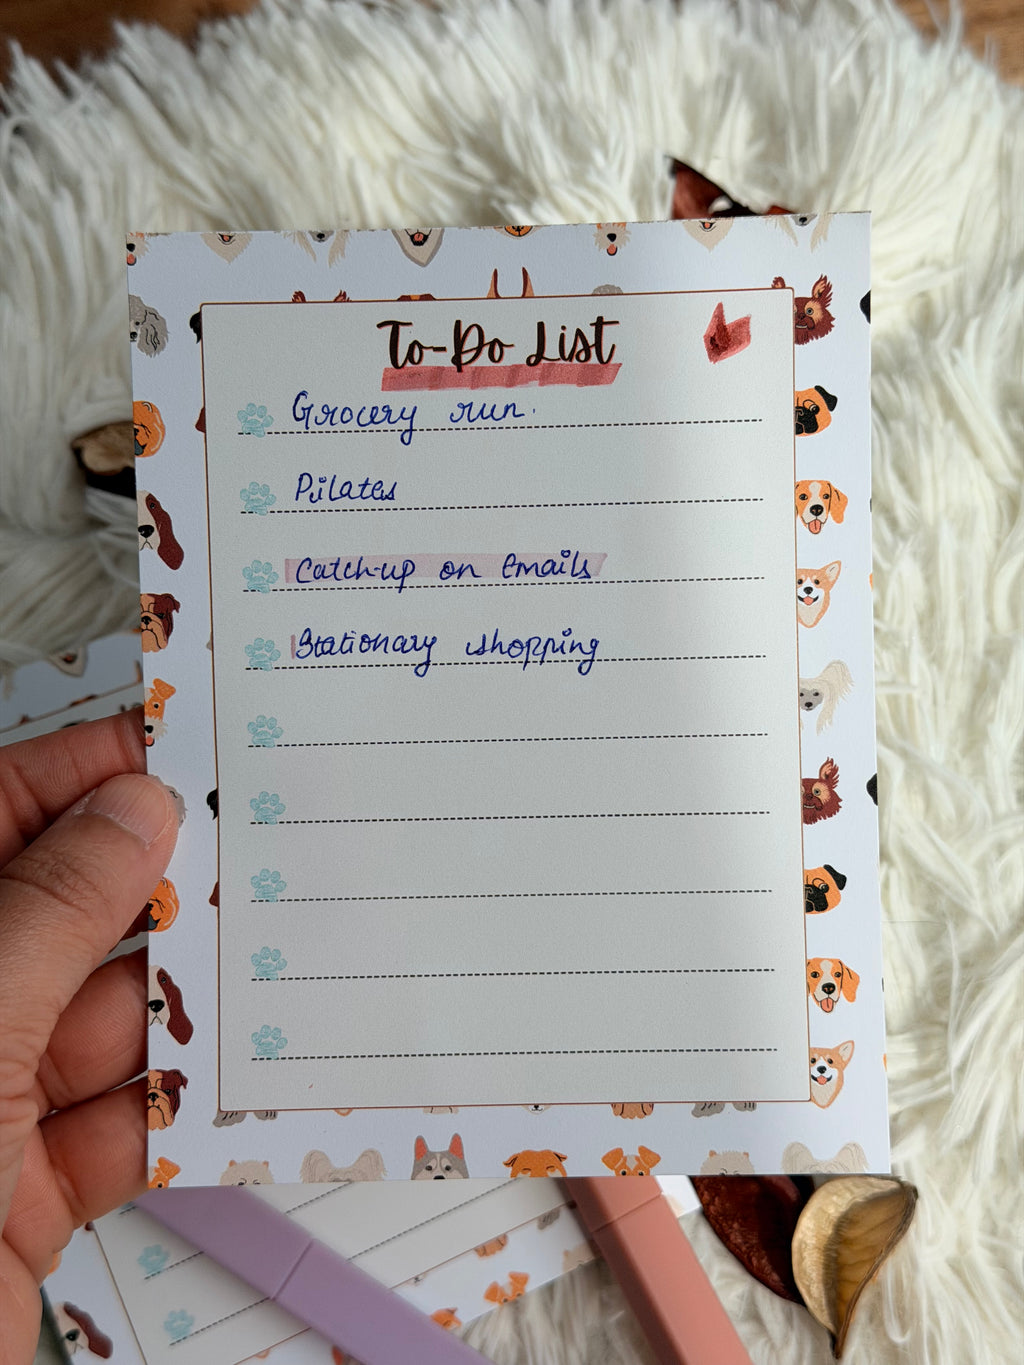 To-Do List
Grocery run.
Pilates
Catch-up on Emails
Stationary shopping